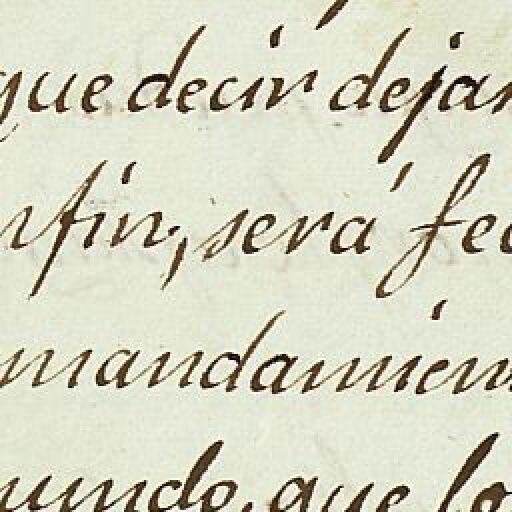 que decir dejan
nfin; será fec
mandamien
mundo, que lo